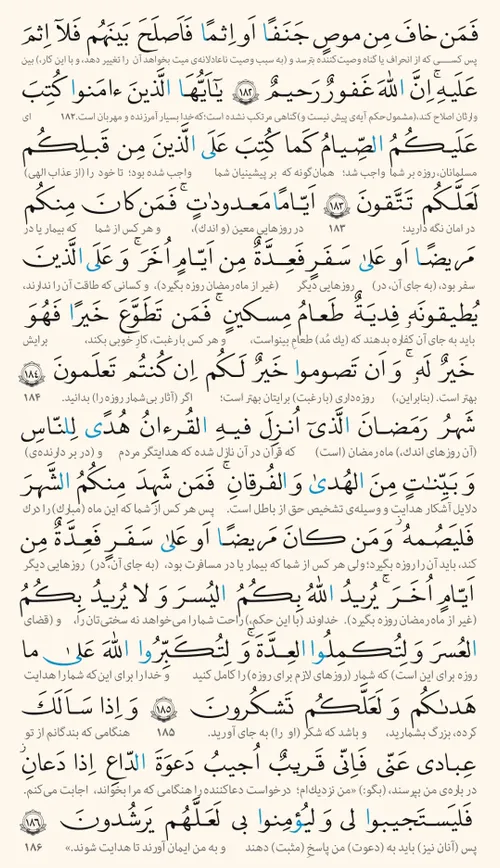 فَمَن خافَ مِن موصٍ جَنَفًا اَو اِثمًا فَاَصلَحَ بَينَهُم فَلآ اِثمَ
پس کسی که از انحراف یا گناه وصیت‌کننده بترسد و (به سبب وصیت ناعادلانه‌ی میت بخواهد آن را تغییر دهد، و با این کار،) بین
عَلَيهِ ۚ اِنَّ اللهَ غَفورٌ رَحيمٌ ﴿١٨٢﴾ يٰٓاَيُّهَا الَّذينَ ءامَنوا كُتِبَ
وارثان اصلاح کند، (مشمول حکم آیه‌ی پیش نیست و) گناهی مرتکب نشده است؛ که خدا بسیار آمرزنده و مهربان است. ۱۸۲ ای
عَلَيكُمُ الصِّيامُ كَما كُتِبَ عَلَى الَّذينَ مِن قَبلِكُم
مسلمانان، روزه بر شما واجب شد؛ همان‌گونه که بر پیشینیان شما واجب شده بود؛ تا خود را (از عذاب الهی)
لَعَلَّكُم تَتَّقونَ ﴿١٨٣﴾ اَيّامًا مَعدوداتٍ ۚ فَمَن كانَ مِنكُم
در امان نگه دارید؛ ۱۸۳ در روزهایی معین (و اندک)، و هر کس از شما که بیمار یا در
مَريضًا اَو عَلىٰ سَفَرٍ فَعِدَّةٌ مِن اَيّامٍ اُخَرَ ۚ وَ عَلَى الَّذينَ
سفر بود، (به جای آن، در) روزهایی دیگر (غیر از ماه رمضان روزه بگیرد)، و کسانی که طاقت آن را ندارند،
يُطيقونَهٗ فِديَةٌ طَعامُ مِسكينٍ ۖ فَمَن تَطَوَّعَ خَيرًا فَهُوَ
باید به جای آن کفاره بدهند که (یك مُد) طعام بینواست، و هر کس با رغبت، کار خوبی بکند، برایش
خَيرٌ لَهٗ ۚ وَ اَن تَصوموا خَيرٌ لَكُم اِن كُنتُم تَعلَمونَ ﴿١٨٤﴾
بهتر است. (بنابراین،) روزه‌داری (با رغبت) برایتان بهتر است؛ اگر (آثار بی‌شمار روزه را) بدانید. ۱۸۴
شَهرُ رَمَضانَ الَّذى اُنزِلَ فيهِ القُرءانُ هُدًى لِلنّاسِ
(آن روزهای اندك،) ماه رمضان (است) که قرآن در آن نازل شده که هدایتگر مردم و (در بر دارنده‌ی)
وَ بَيِّنٰتٍ مِنَ الهُدىٰ وَ الفُرقانِ ۚ فَمَن شَهِدَ مِنكُمُ الشَّهرَ
دلایل آشکار هدایت و وسیله‌ی تشخیص حق از باطل است. پس هر کس از شما که این ماه (مبارک) را درك
فَليَصُمهُ ۖ وَ مَن كانَ مَريضًا اَو عَلىٰ سَفَرٍ فَعِدَّةٌ مِن
کند، باید آن را روزه بگیرد؛ ولی هر کس از شما که بیمار یا در مسافرت بود، (به جای آن، در) روزهایی دیگر
اَيّامٍ اُخَرَ ۗ يُريدُ اللهُ بِكُمُ اليُسرَ وَ لا يُريدُ بِكُمُ
(غیر از ماه رمضان روزه بگیرد). خداوند (با این حکم،) راحت شما را می‌خواهد نه سختی‌تان را، و (قضای
العُسرَ وَ لِتُكمِلُوا العِدَّةَ وَ لِتُكَبِّرُوا اللهَ عَلىٰ ما
روزه برای این است) که شمار (روزهای لازم برای روزه) را کامل کنید و خدا را برای این‌که شما را هدایت
هَدىٰكُم وَ لَعَلَّكُم تَشكُرونَ ﴿١٨٥﴾ وَ اِذا سَاَلَكَ
کرده، بزرگ بشمارید، و باشد که شکر (او را) به جای آورید. ۱۸۵ هنگامی که بندگانم از تو
عِبادى عَنّى فَاِنّى قَريبٌ ۖ اُجيبُ دَعوَةَ الدّاعِ اِذا دَعانِ ۖ
در باره‌ی من بپرسند، (بگو:) «من نزدیك‌ام؛ درخواست دعاکننده را هنگامی که مرا بخواند، اجابت می‌کنم.
فَليَستَجيبوا لى وَ ليُؤمِنوا بى لَعَلَّهُم يَرشُدونَ ﴿١٨٦﴾
پس (آنان نیز) باید به (دعوت) من پاسخ (مثبت) دهند و به من ایمان آورند تا هدایت شوند.» ۱۸۶